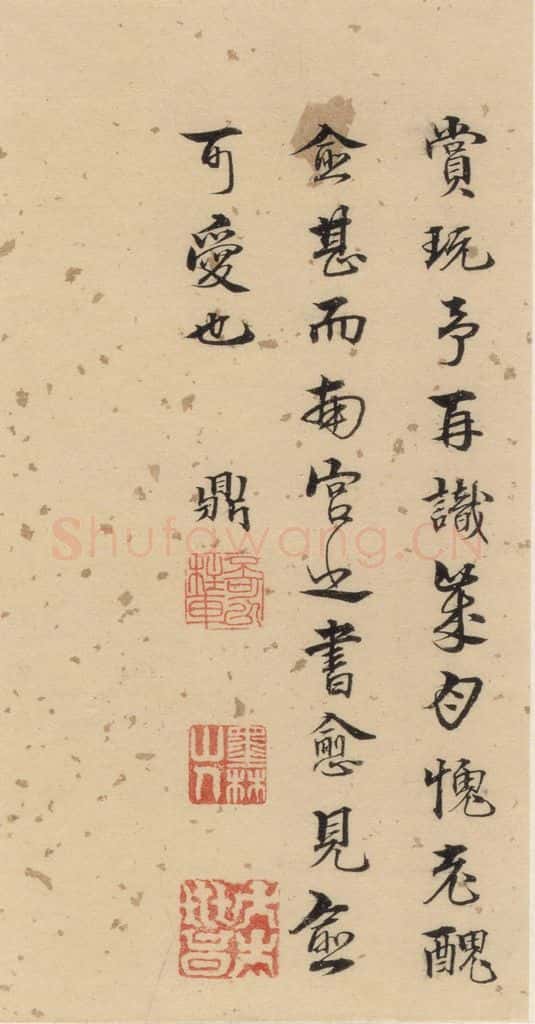 賞玩予再識自愧老醜
愈甚而南宮之書愈見愈
可愛也 鼎
墨林山人
Shufawang.CN